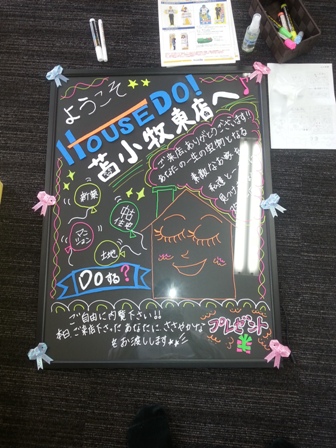 ようこそ
HOUSE DO!
苫小牧東店へ
ご来店、ありがとうございます!!
あなたの一生の宝物となる
素敵なお家を
私達と一
見つけ
新築
中古
住宅
マン
ション
土地
Doする?
ご自由に内覧下さい!!
本日ご来店下さったあなたに、ささやかな
プレゼント
をお渡しします
も